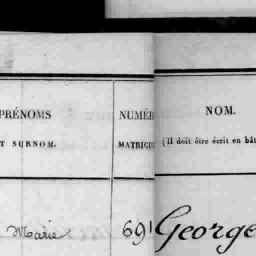 PRÉNOMS
ET SURNOM.
NUMÉR
MATRICU
NOM.
(Il doit être écrit en bât
Marie
691
George